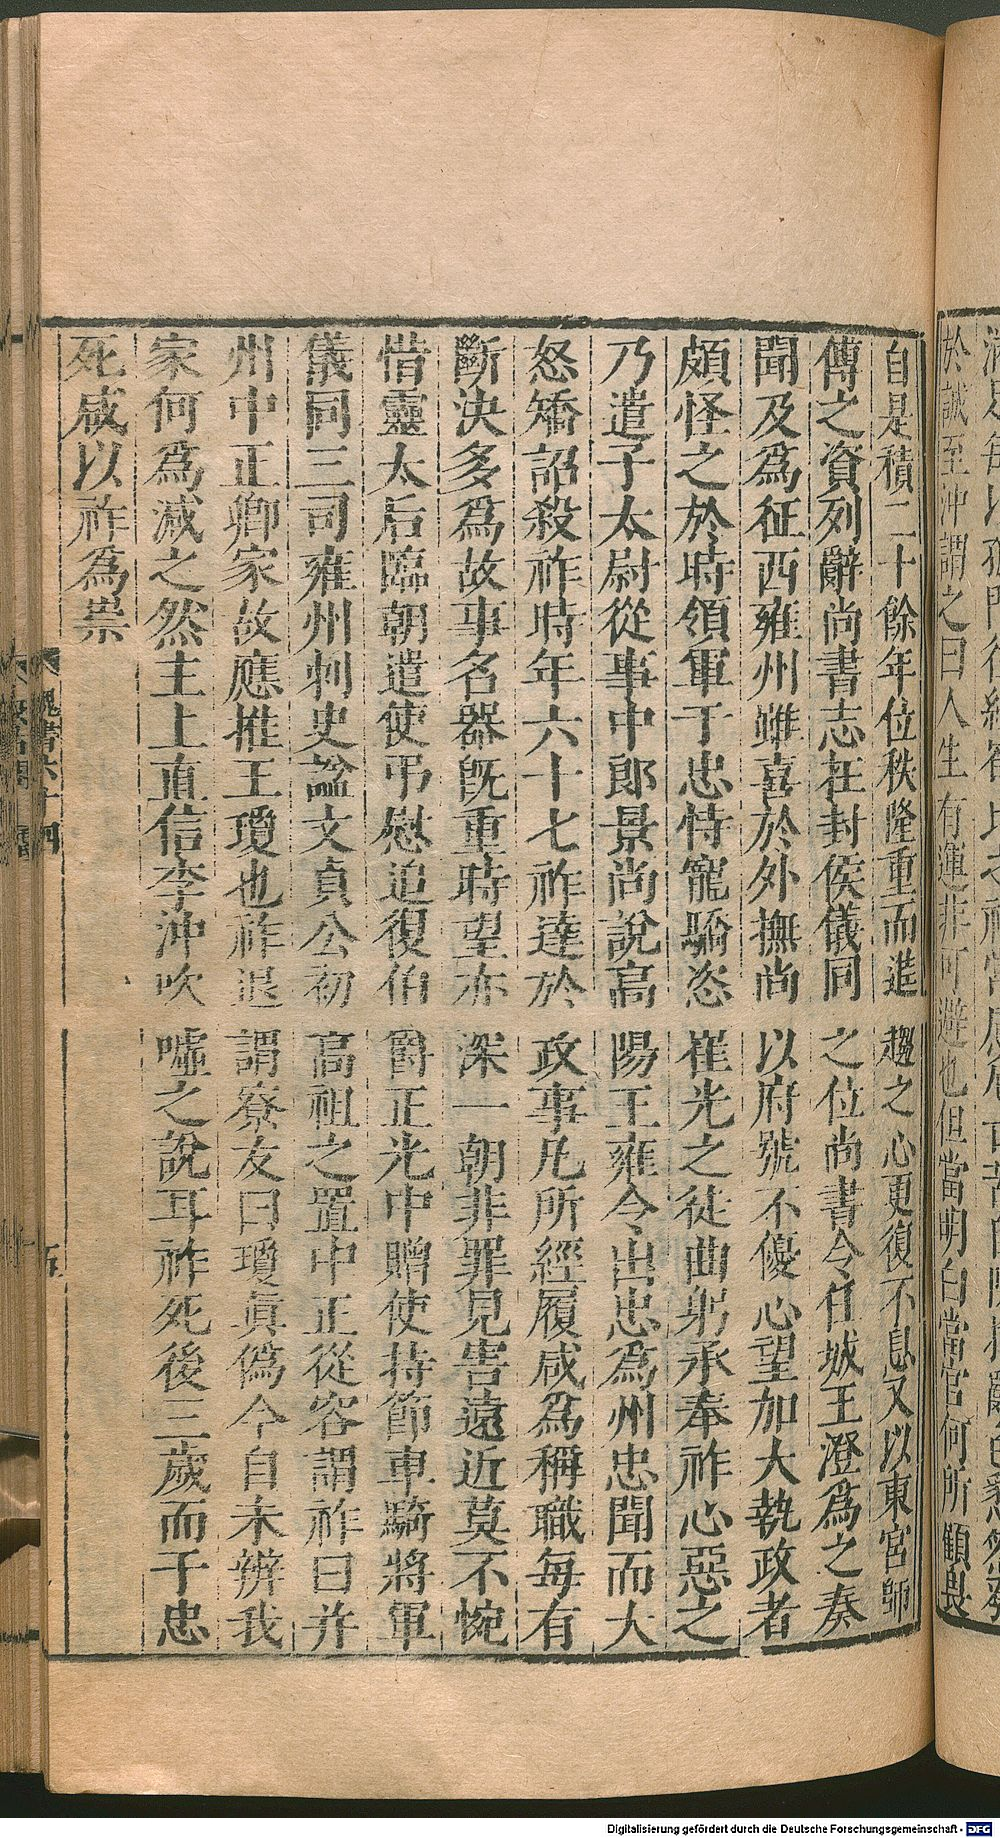 於誠至沖謂之曰人生有運非可避也但當明白當官何所顧畏
自是積二十餘年位秩隆重而進趨之心更復不息又以東宮師
傅之資列辭尚書志在封侯儀同之位尚書令任城王澄爲之奏
聞及爲征西雍州雖喜於外撫尚以府號不優心望加大執政者
頗怪之於時領軍于忠恃寵驕恣崔光之徒曲躬承奉祚心惡之
乃遣子太尉從事中郎景尚說高陽王雍令出忠爲州忠聞而大
怒矯詔殺祚時年六十七祚達於政事凡所經履咸爲稱職每有
斷決多爲故事名器旣重時望亦深一朝非罪見害遠近莫不惋
惜靈太后臨朝遣使弔慰追復伯爵正光中贈使持節車騎將軍
儀同三司雍州刺史諡文貞公初高祖之置中正從容謂祚曰并
州中正卿家故應推王瓊也祚退謂寮友曰瓊眞僞今自未辨我
家何爲減之然主上直信李沖吹噓之說耳祚死後三歲而于忠
死咸以祚爲祟
魏書六十四
五
Digitalisierung gefördert durch die Deutsche Forschungsgemeinschaft - DFG